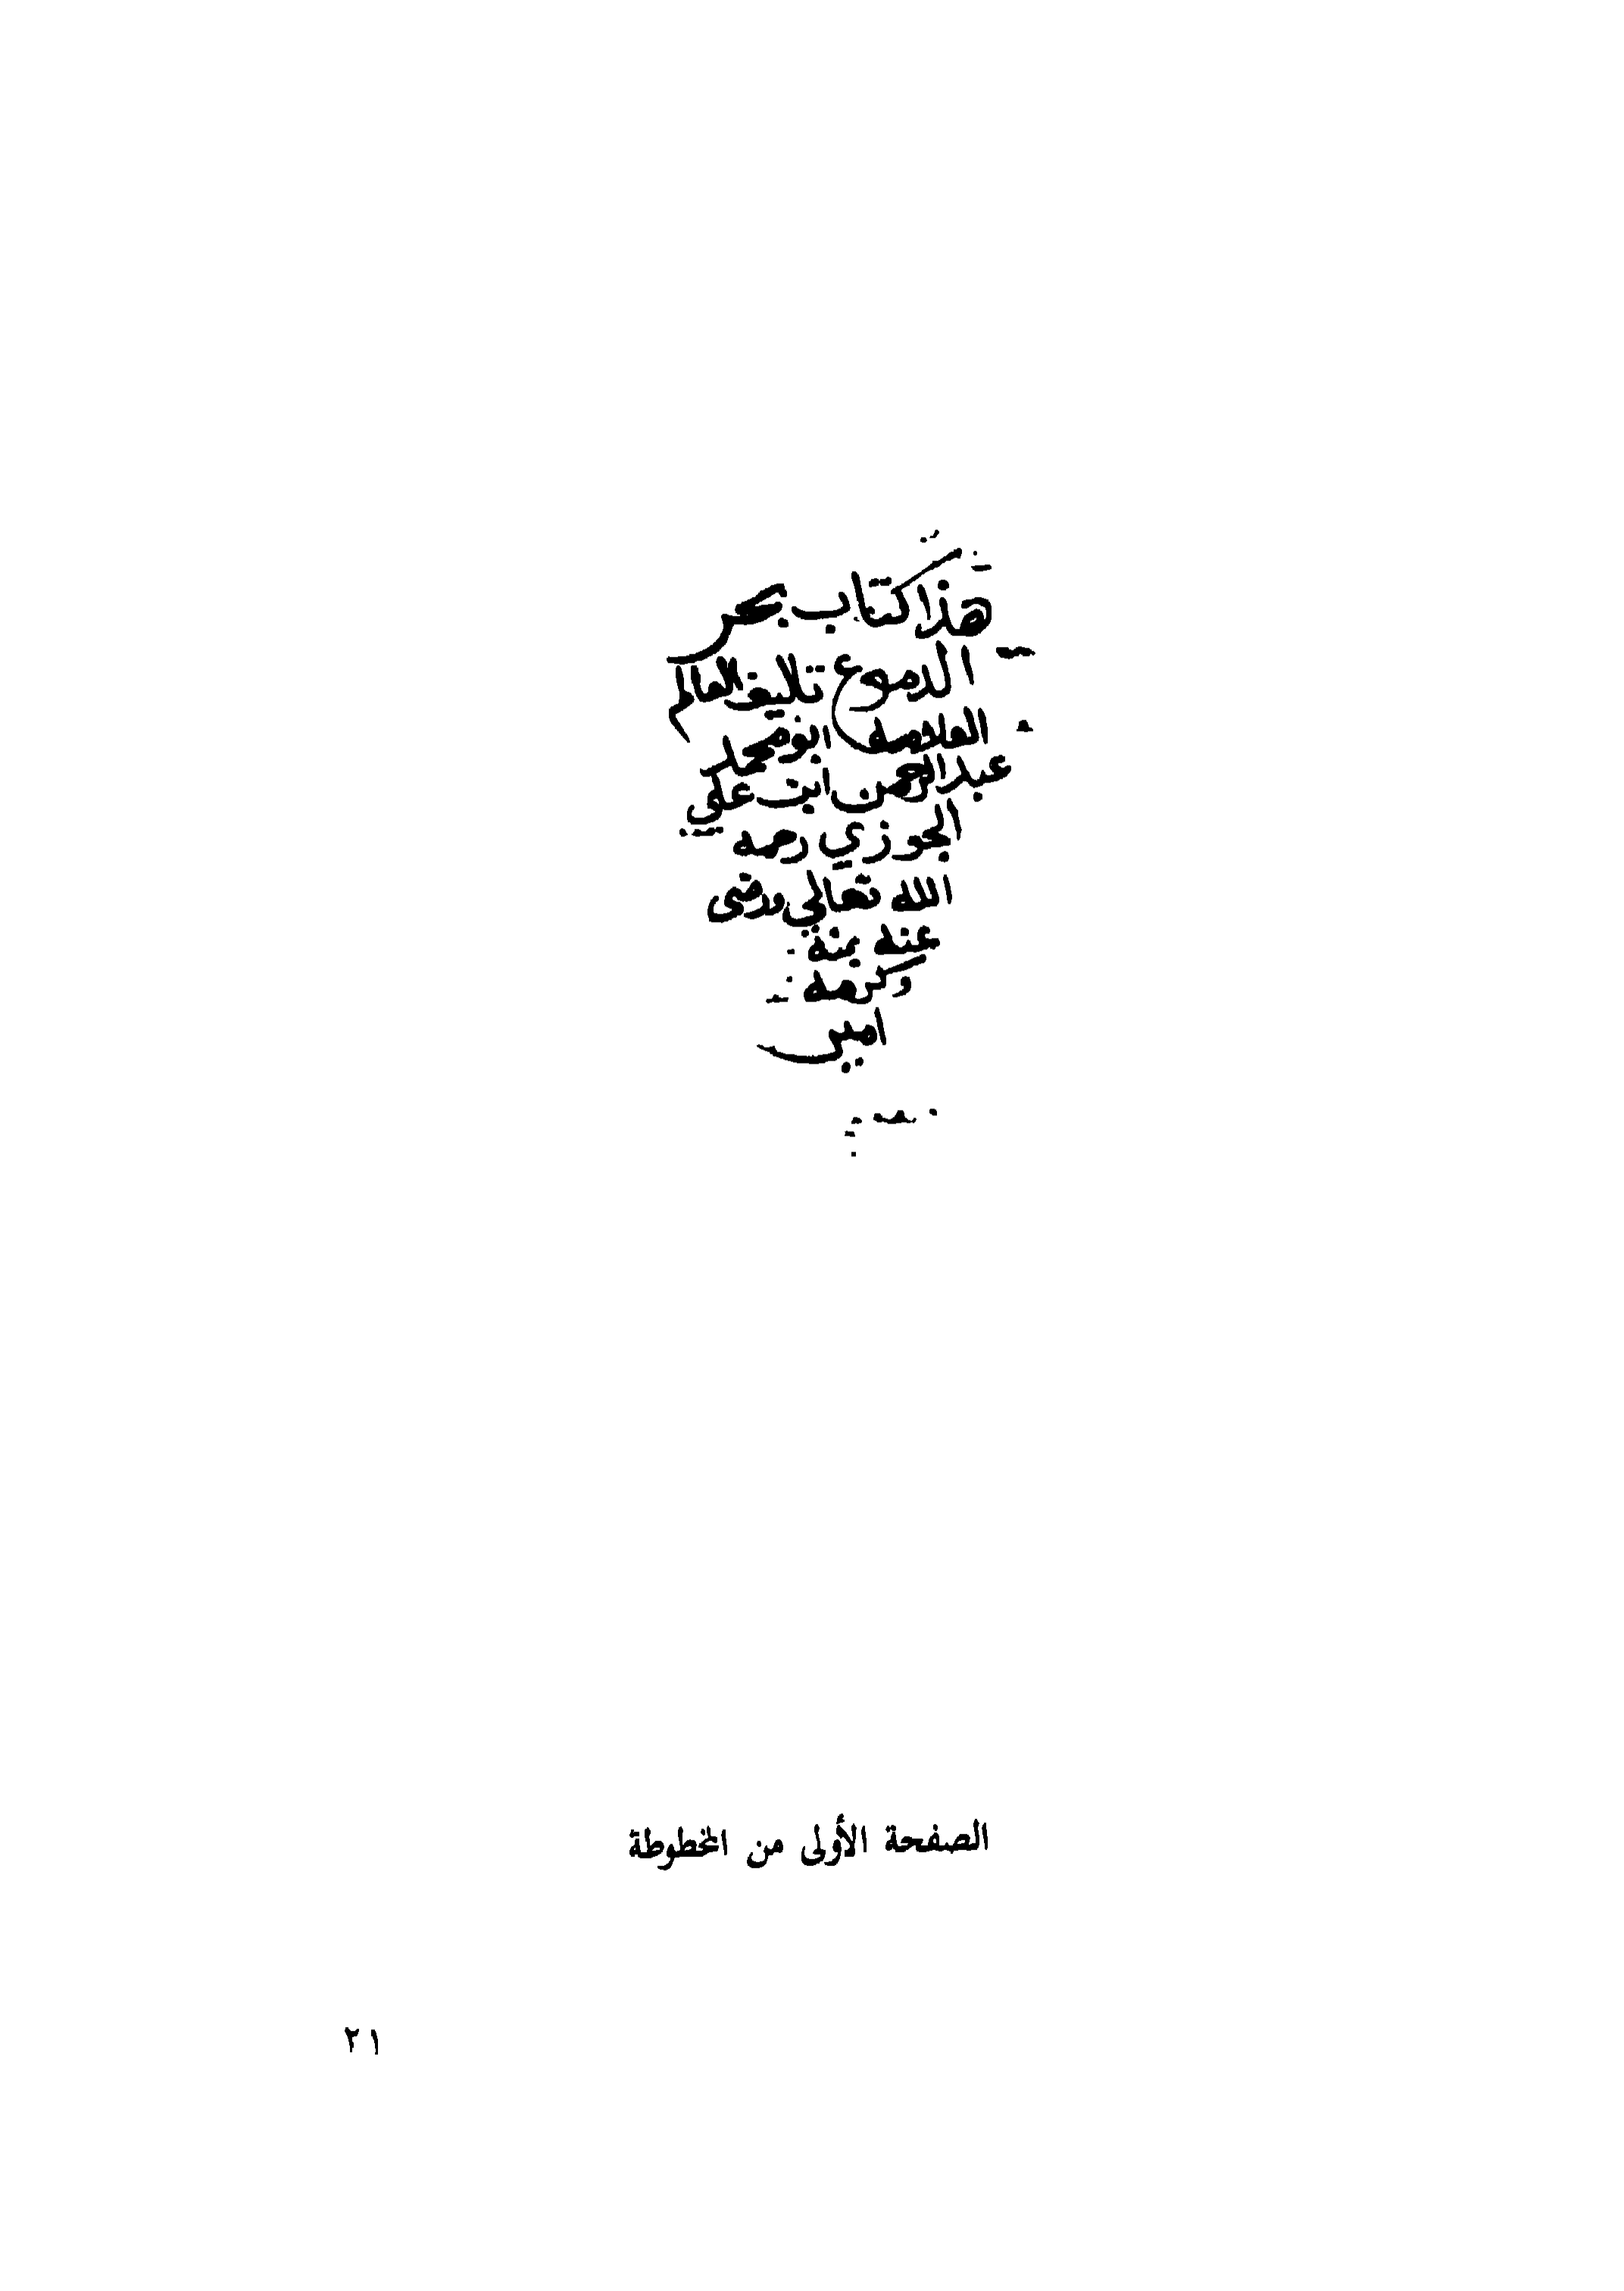 هذا كتاب بحر
الدموع تاليف العالم
العلامه ابو محمد
عبد الرحمن ابن علي
الجوزي رحمه
الله تعالي ورضى
عنه بمنة
وكرمه
امين
الصفحة الأولى من المخطوطة
٢١